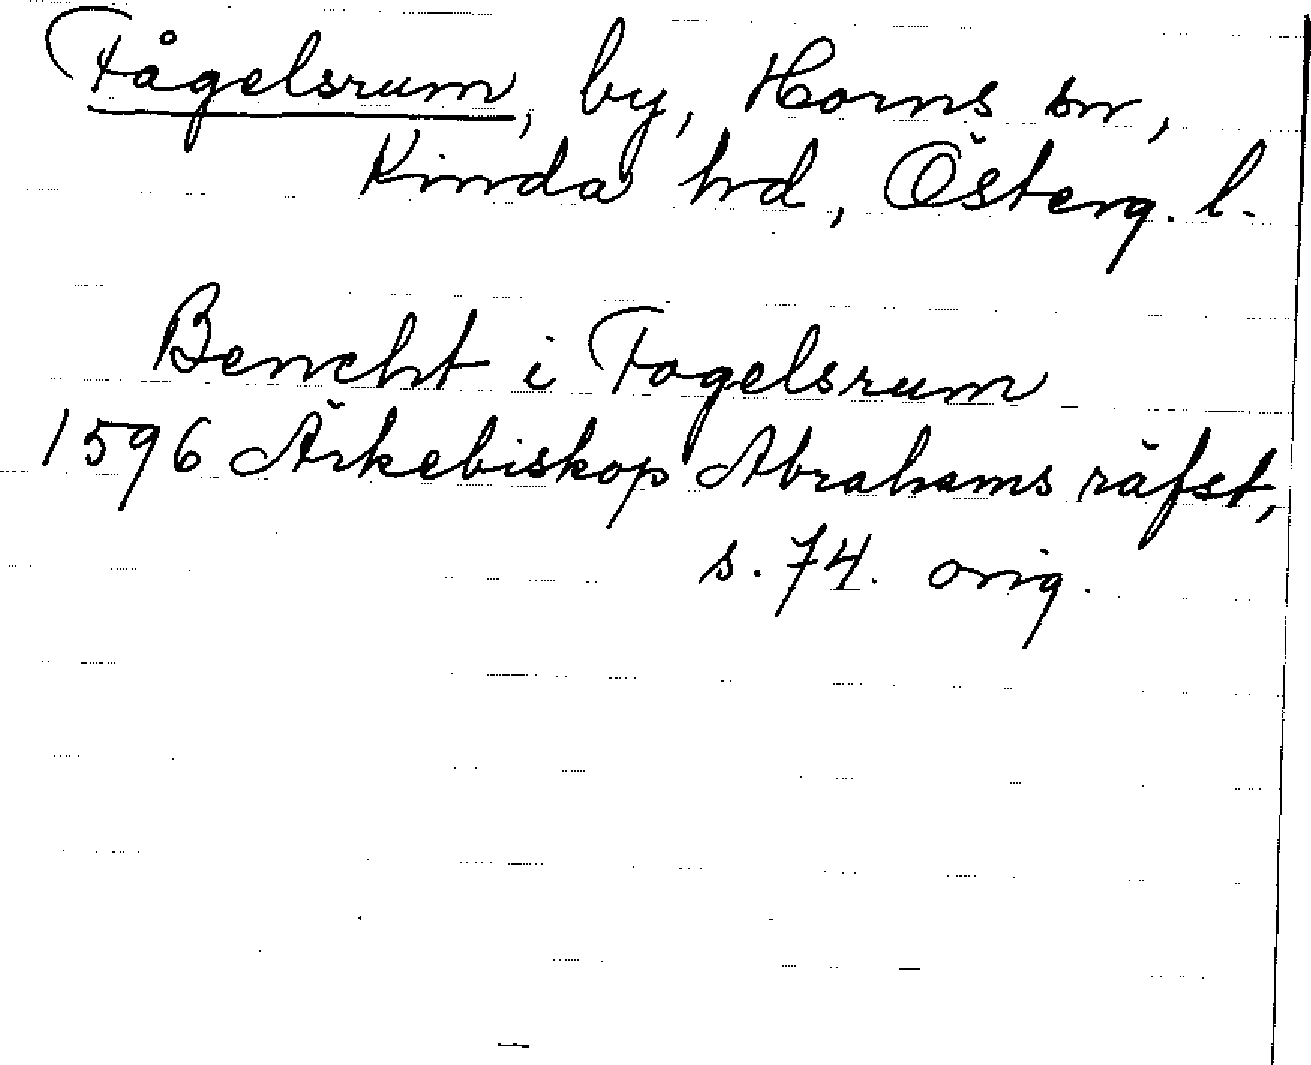 Fågelsrum, by, Horns sn,
Kinda hd, Österg. l.
Bencht i Fogelsrum
1596 Ärkebiskop Abrahams räfst,
s. 74. orig.